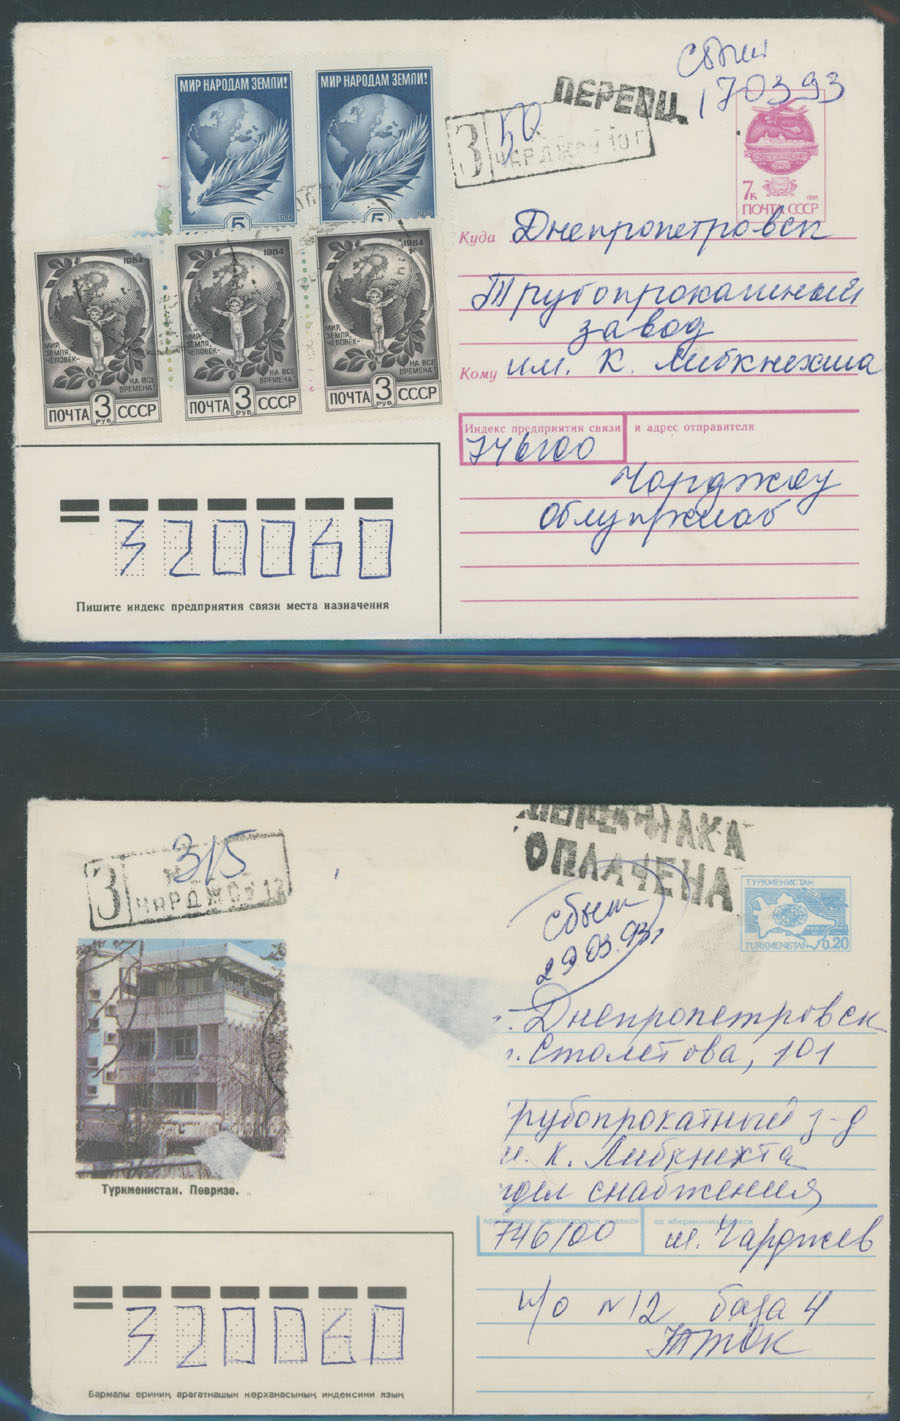 МИР НАРОДАМ ЗЕМЛИ!
МИР НАРОДАМ ЗЕМЛИ!
5
5
1984
1984
1984
МИР,
ЗЕМЛЯ,
ЧЕЛОВЕК-
НА ВСЕ
ВРЕМЕНА!
ПОЧТА 3 РУБ СССР
МИР,
ЗЕМЛЯ,
ЧЕЛОВЕК-
НА ВСЕ
ВРЕМЕНА!
ПОЧТА 3 РУБ СССР
МИР,
ЗЕМЛЯ,
ЧЕЛОВЕК-
НА ВСЕ
ВРЕМЕНА!
ПОЧТА 3 РУБ СССР
Сбыт
17 03 93
З
ЧАРДЖОУ 10
7к 1991
ПОЧТА СССР
Куда Днепропетровск
Трубопрокатный
завод
Кому им. К. Либкнехта
Индекс предприятия связи и адрес отправителя
746100
Чарджоу
320060
Пишите индекс предприятия связи места назначения
ОПЛАЧЕНА
З 315
ЧАРДЖОУ 12
ТҮРКМЕНИСТАН
TURKMENISTAN 0.20
сбыт
29 03.93г
Днепропетровск
Столетова, 101
рубопрокатный з-д
К. Либкнехта
снабжения
Түркменистан. Пөвризе.
746100 Чарджев
п/о №12 база 4
320060
Бармалы ериниң арагатнашык кәрханасының индексини язың